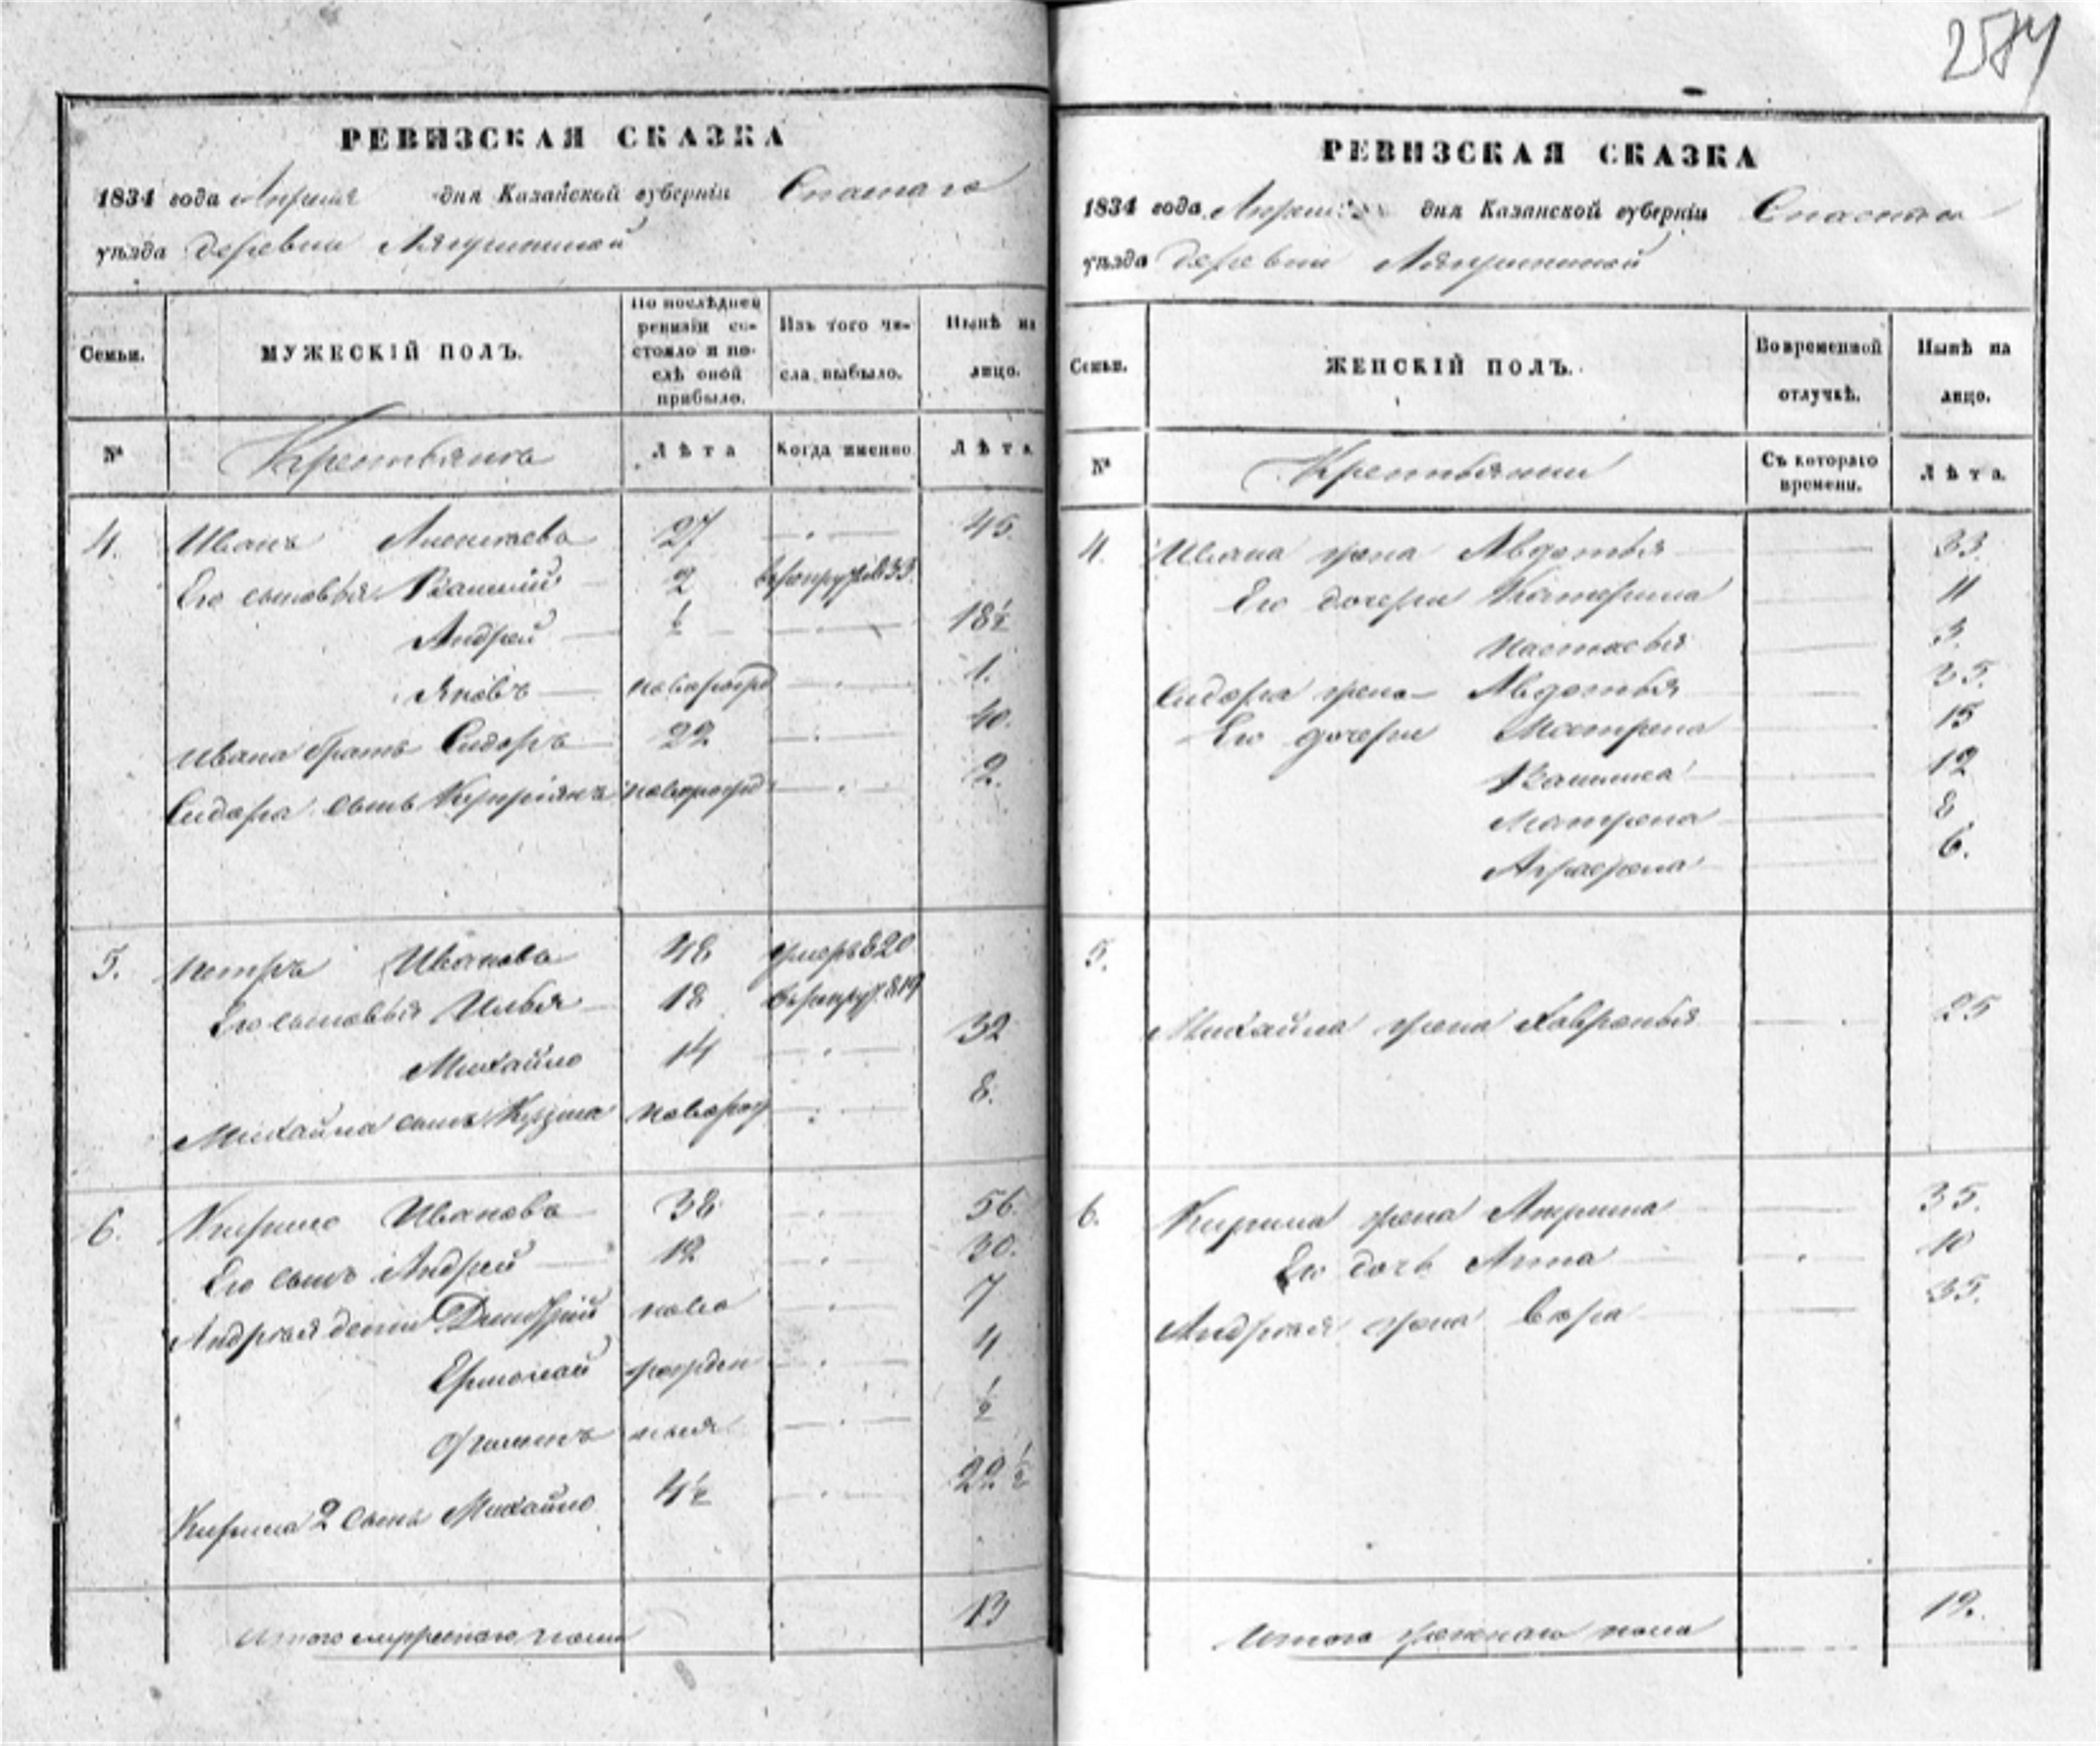 2574
РЕВИЗСКАЯ СКАЗКА
1834 года Апреля дня Казанской губерніи Спаскаго
уѣзда деревни
Семьи.
МУЖЕСКІЙ ПОЛЪ.
По послѣдней ревизіи состояло и послѣ оной прибыло.
Изъ того числа выбыло.
Нынѣ на лицо.
№
Крестьянъ
Лѣта
Когда именно
Лѣта
4. Иванъ Алексѣевъ 27 45
Его сыновья Василий 2 в рекруты в 833
Андрей ½ 18½
Яковъ новорожд 1.
Ивана братъ Сидоръ 22 40.
Сидора сынъ Купріянъ новорожд 2.
5. Петръ Ивановъ 48 умеръ 820
Его сыновья Илья 18 в рекруты 819
Михайло 14 32
Михайла сынъ Кузма новорож 8.
6. Кирило Ивановъ 38 56
Его сынъ Андрей 12 30.
Андрея дети Дмитрій ново 7
Ермолай рожден 4
Филипъ ныя ½
Кирила 2 сынъ Михайло 4½ 22½
Итого мужеского пола 13
РЕВИЗСКАЯ СКАЗКА
1834 года Апреля дня Казанской губерніи Спаскаго
уѣзда деревни
Семьи.
ЖЕНСКІЙ ПОЛЪ.
Во временной отлучкѣ.
Нынѣ на лицо.
№
Крестьянки
Съ котораго времени.
Лѣта.
4. Ивана жена Авдотья 33.
Его дочери Катерина 11
Настасья 3.
Сидора жена Авдотья 35.
Его дочери 15
Василиса 12
Матрена 8
Аграфена 6.
5.
Михайла жена Хавронья 25
6. Кирила жена 35.
Его дочь Анна 10
Андрея жена Вера 35.
Итого женскаго пола 12.